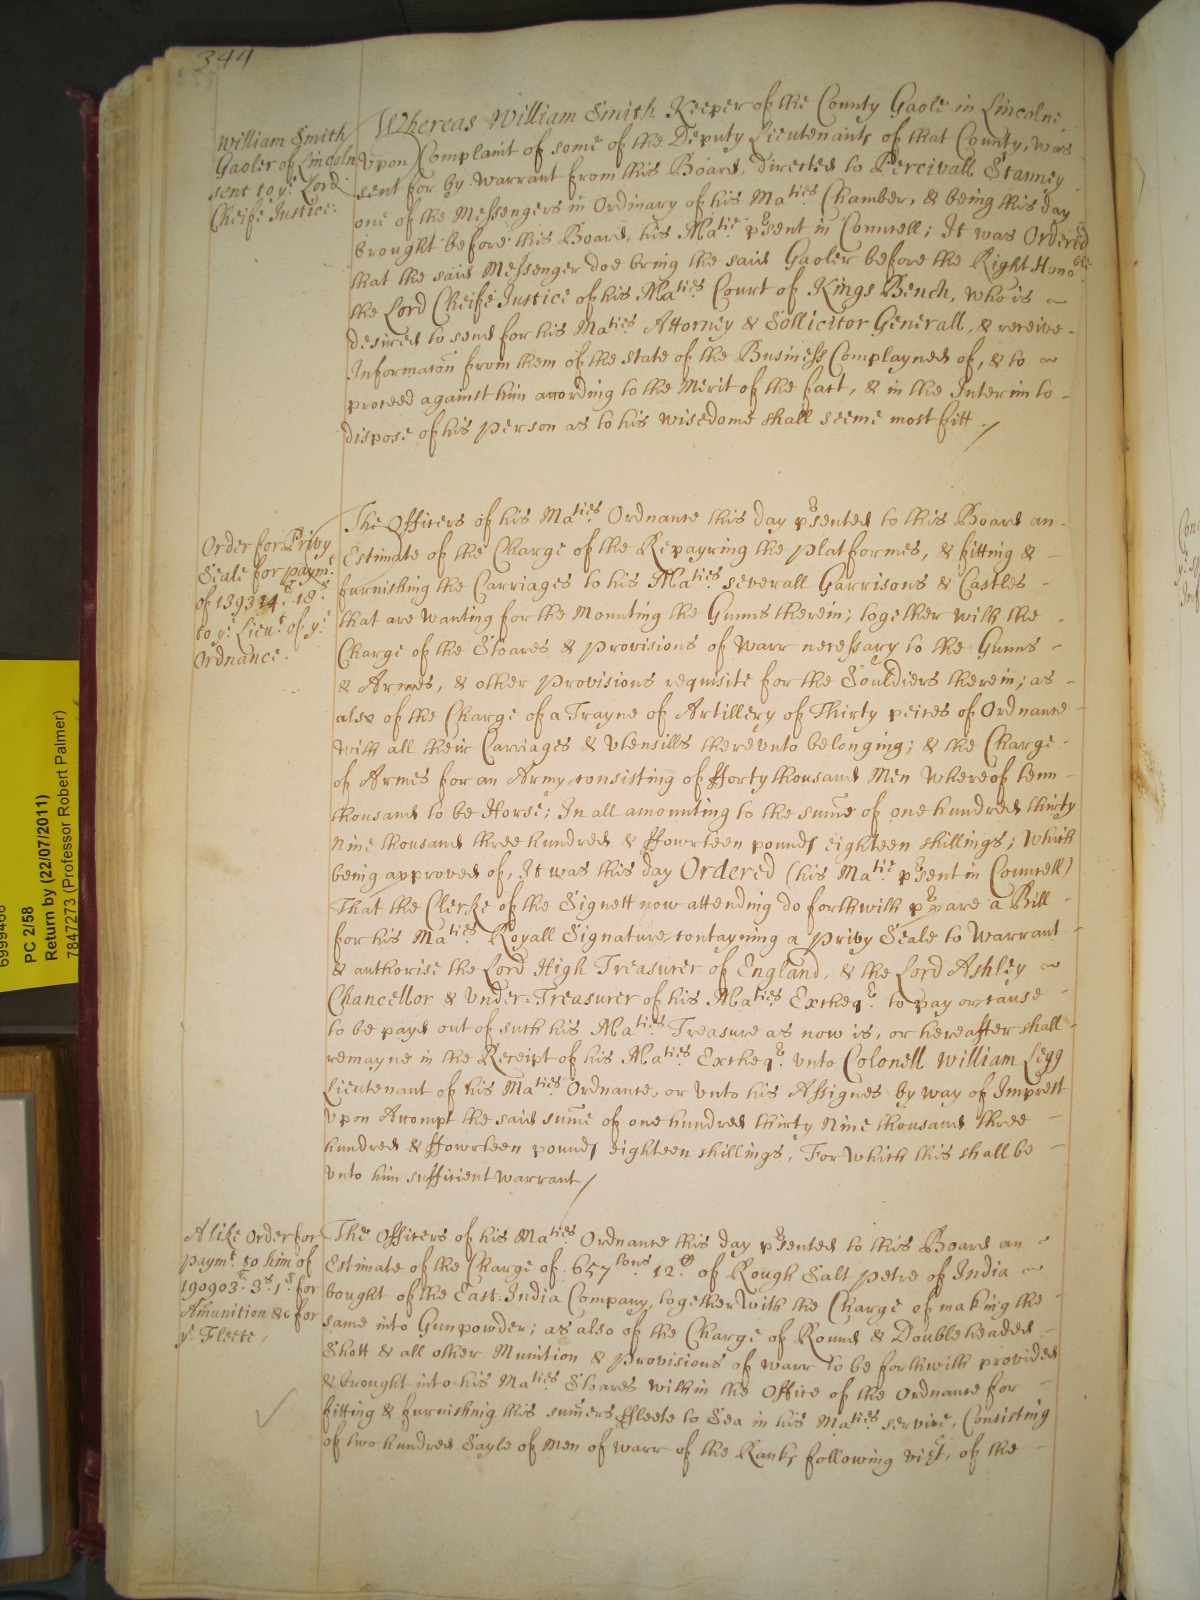 344
William Smith
Gaoler of Lincoln
sent to yᵉ Lord
Cheife Justice:
Whereas William Smith Keeper of the County Gaole in Lincolne,
vpon Complaint of some of the Deputy Lieutenants of that County, was
sent for by Warrant from this Board, directed to Percivall Stanney
one of the Messengers in Ordinary of his Maᵗⁱᵉˢ Chamber, & being this day
brought before this Board, his Maᵗⁱᵉ pʳsent in Councell; It was Ordered
that the said Messenger doe bring the said Gaoler before the Right Honoᵇˡᵉ
the Lord Cheife Justice of his Maᵗⁱᵉˢ Court of Kings Bench, who is
desired to send for his Maᵗⁱᵉˢ Attorney & Sollicitor Generall, & receive
Informacon from them of the state of the Business Complayned of, & to
proceed against him according to the Merit of the fact, & in the Interim to
dispose of his person as to his wisedome shall seeme most fitt./
Order for Privy
Seale for paymᵗ
of 139314ˡ: 18ˢ
to yᵉ Lieuᵗ of yᵉ
Ordnance.
The Officers of his Maᵗⁱᵉˢ Ordnance this day pʳsented to this Board an
Estimate of the Charge of the Repayring the platformes, & fitting &
furnishing the Carriages to his Maᵗⁱᵉˢ severall Garrisons & Castles
that are wanting for the Mounting the Gunns therein; together with the
Charge of the Stoares & provisions of Warr necessary to the Gunns
& Armes, & other provisions requisite for the Souldiers therein; as
also of the Charge of a Trayne of Artillery of Thirty peices of Ordnance
With all their Carriages & vtensills therevnto belonging; & the Charge
of Armes for an Army consisting of fforty thousand Men Whereof tenn
thousand to be Horse; In all amounting to the sum̄e of one hundred thirty
Nine thousand three hundred & ffowrteen pounds eighteen shillings; Which
being approved of, It was this day Ordered (his Maᵗⁱᵉ pʳsent in Councell)
That the Clerke of the Signett now attending do forthwith pʳpare a Bill
for his Maᵗⁱᵉˢ Royall Signature contayning a privy Seale to Warrant
& authorise the Lord High Treasurer of England, & the Lord Ashley
Chancellor & Vnder-Treasurer of his Maᵗⁱᵉˢ Excheqʳ to pay or cause
to be payd out of such his Maᵗⁱᵉˢ Treasure as now is, or hereafter shall
remayne in the Receipt of his Maᵗⁱᵉˢ Excheqʳ vnto Colonell William Legg
Lieutenant of his Maᵗⁱᵉˢ Ordnance, or vnto his Assignes by way of Imprest
vpon Accompt the said sum̄e of one hundred thirty Nine thousand three
hundred & ffowrteen pounds eighteen shillings, For Which this shall be
vnto him sufficient warrant/
A like Order for
paymᵗ to him of
190903ˡ: 3ˢ: 1ᵈ for
Am̄unition &c for
yᵉ Fleete
The Officers of his Maᵗⁱᵉˢ Ordnance this day pʳsented to this Board an
Estimate of the Charge of 657 ᵗᵒⁿˢ 12.ᶜ of Rough Salt petre of India
bought of the East-India Company, together With the Charge of making the
same into Gunpowder; as also of the Charge of Round & Doubleheaded
Shott & all other Munition & provisions of warr to be forthwith provided
& brought into his Maᵗⁱᵉˢ Stoares within the Office of the Ordnance for
fitting & furnishing this sum̄ers ffleete to Sea in his Maᵗⁱᵉˢ service, Consisting
of two hundred Sayle of Men of Warr of the Ranks following vizᵗ, of the
PC 2/58
Return by (22/07/2011)
7847273 (Professor Robert Palmer)